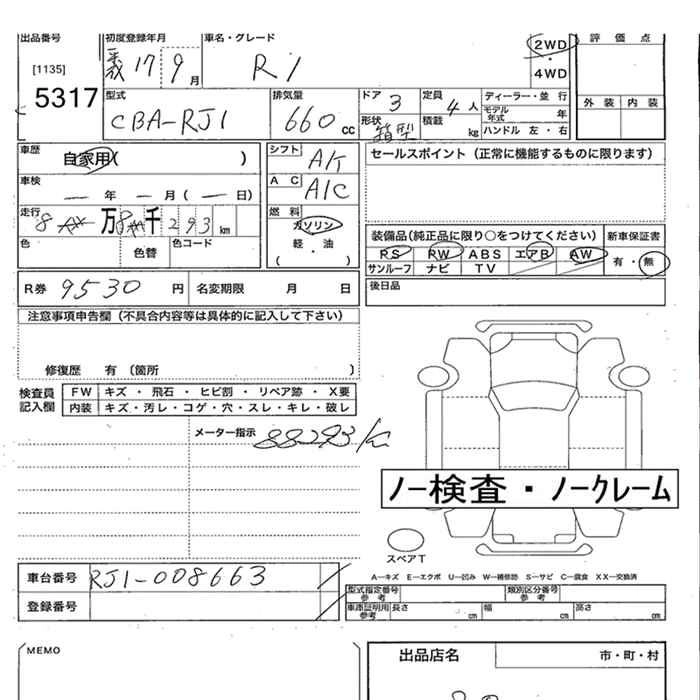 出品番号 初度登録年月 車名・グレード 評価点
[1135] 17 9月 R1 2WD・4WD
5317 外装 内装
型式 排気量 ドア 定員 ディーラー・並行
CBA-RJ1 660cc 3 4人 モデル年式 年
形状 箱型 積載 kg ハンドル 左・右
車歴 自家用( ) シフト セールスポイント（正常に機能するものに限ります）
車検 ー年 ー月(ー日) AC A/C
走行 8 万 8 千 293 km 燃料 ガソリン 軽・油 ( )
色 色替 色コード
装備品(純正品に限り○をつけてください) 新車保証書
PS PW ABS エアB AW 有・無
サンルーフ ナビ TV
R券 9530円 名変期限 月 日 後日品
注意事項申告欄（不具合内容等は具体的に記入して下さい）
修復歴 有〔箇所 〕
検査員記入欄 FW キズ・飛石・ヒビ割・リペア跡・X要
内装 キズ・汚レ・コゲ・穴・スレ・キレ・破レ
メーター指示 88293K
ノー検査・ノークレーム
スペアT
車台番号 RJ1-008663
A－キズ E－エクボ U－凹み W－補修跡 S－サビ C－腐食 XX－交換済
登録番号
型式指定番号参考 類別区分番号参考
車庫証明用参考 長さ cm 幅 cm 高さ cm
MEMO 出品店名 市・町・村